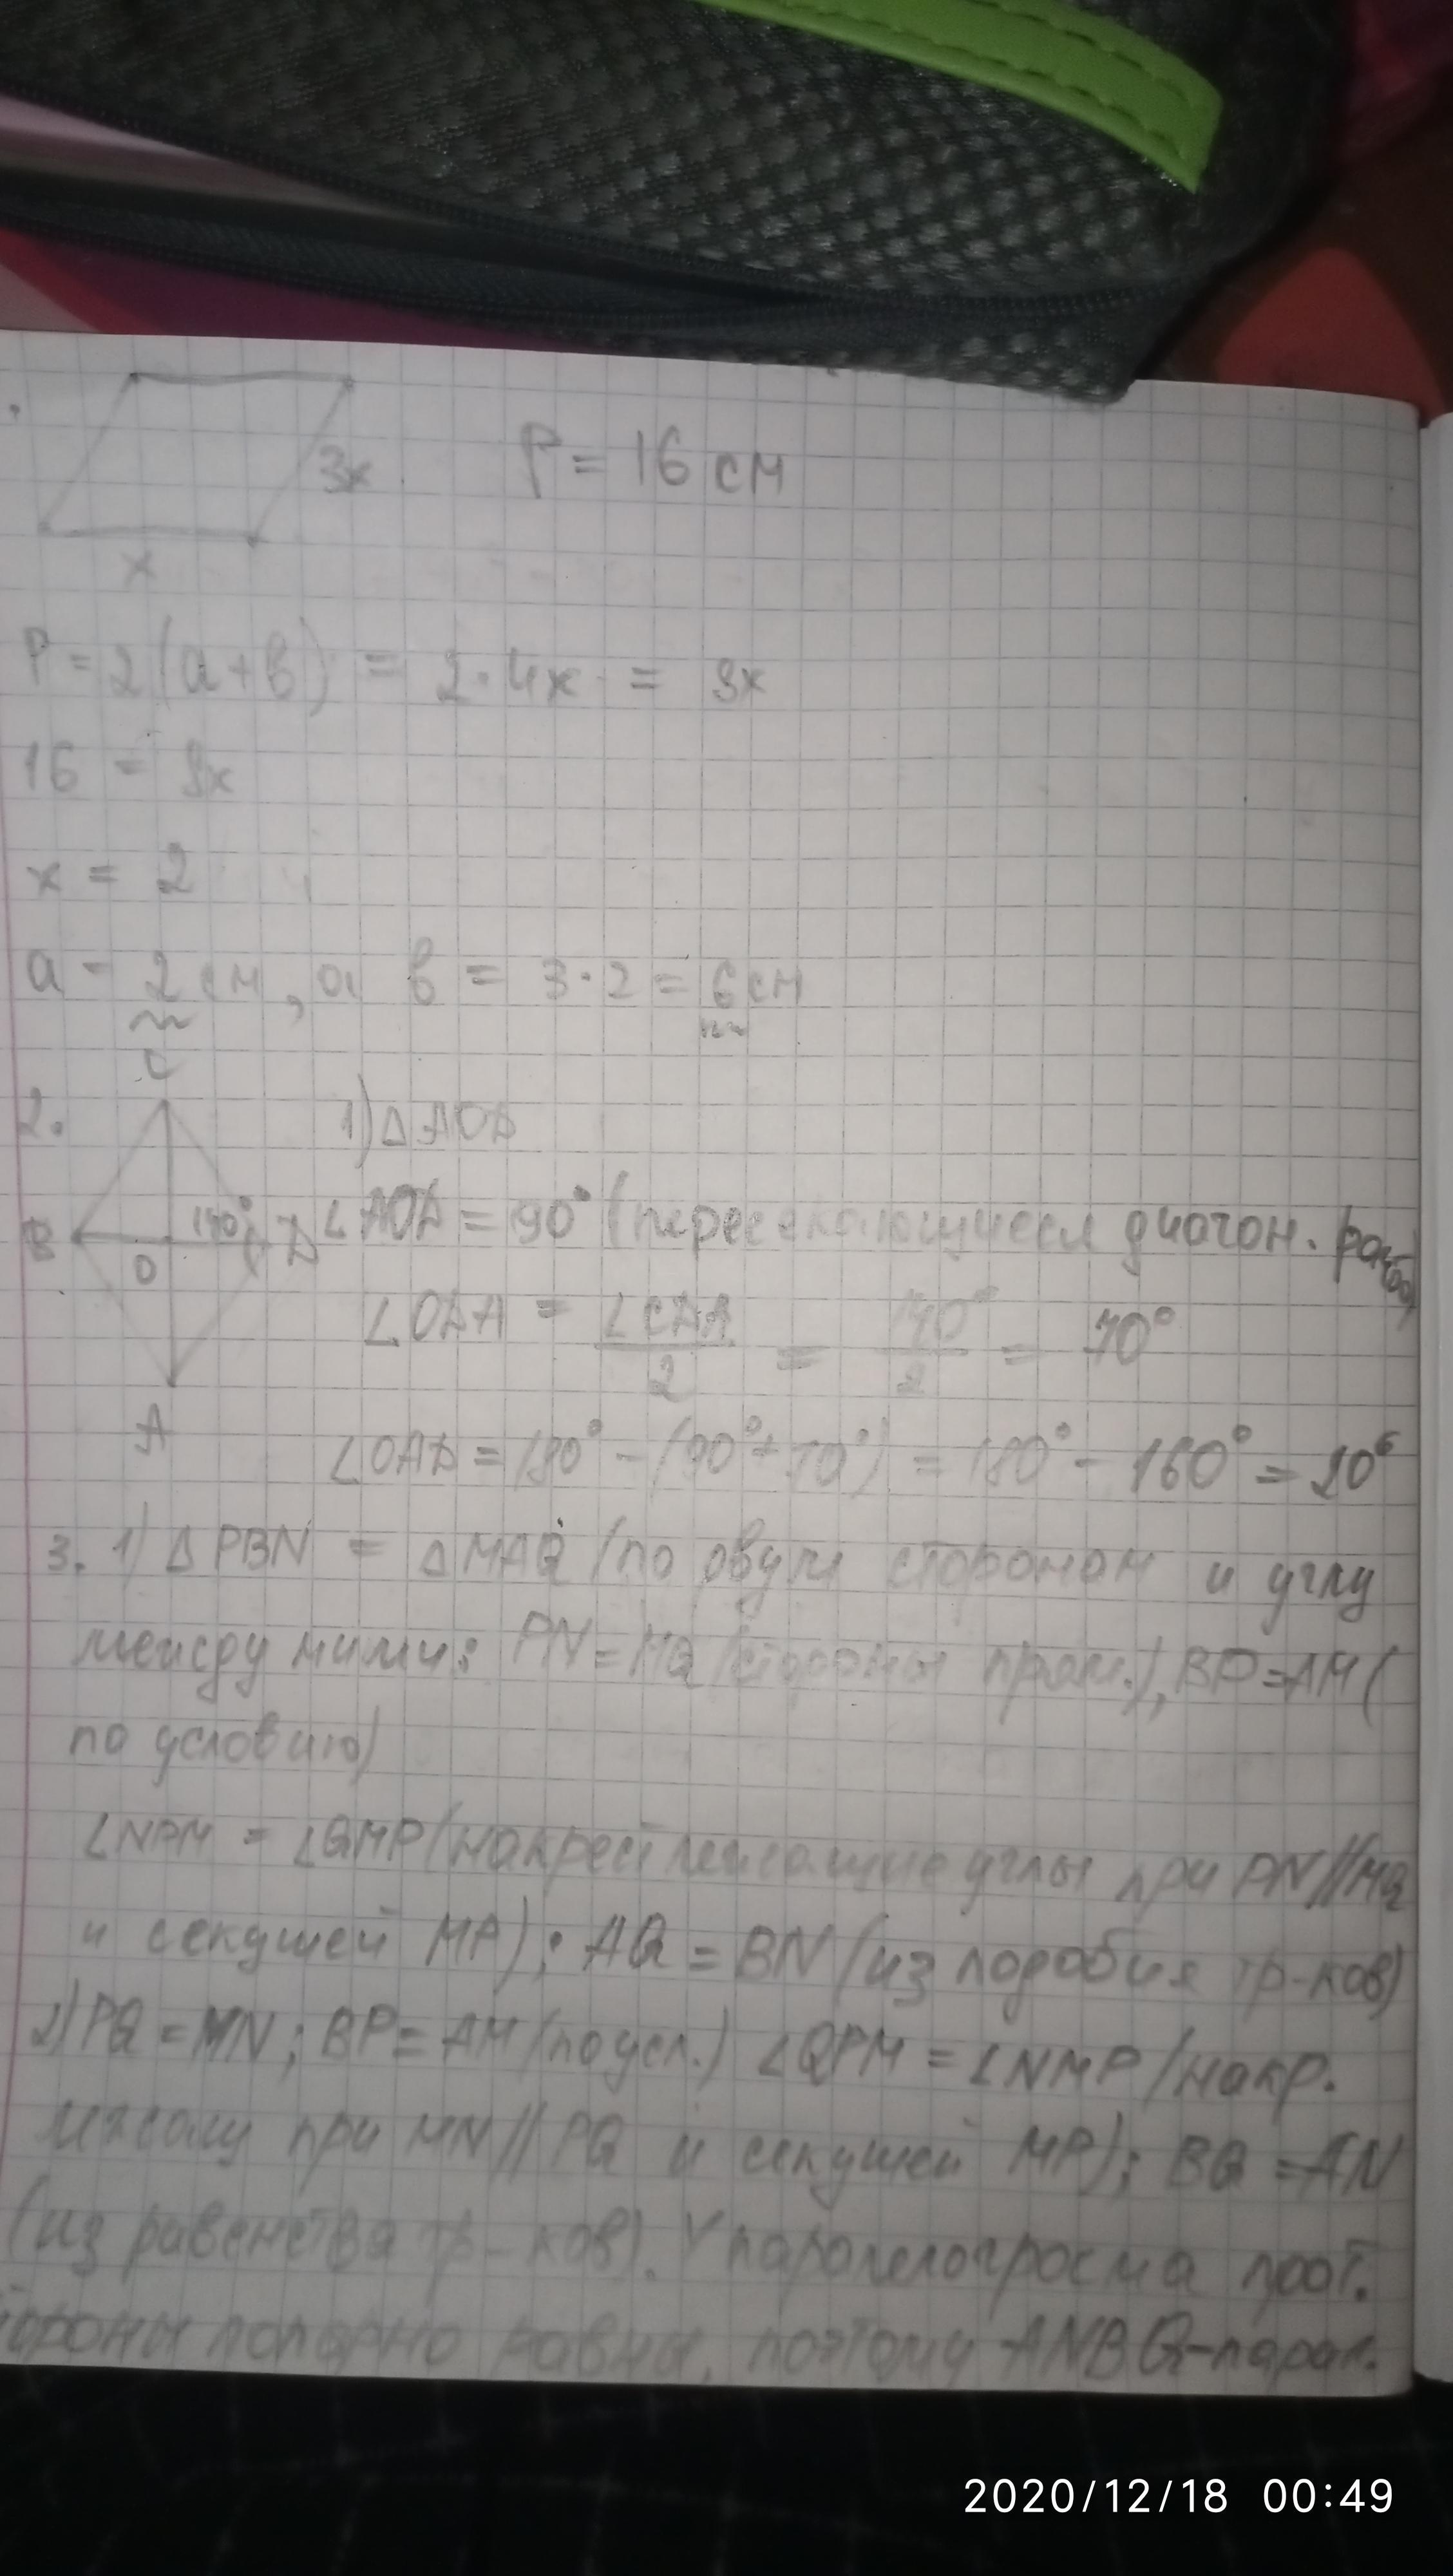 3x
P = 16 см
x
P = 2(a+b) = 2·4x = 8x
16 = 8x
x = 2
a = 2 см, а b = 3·2 = 6 см
C
2.
1) △AOD
B
O
140°
D
∠AOD = 90° (пересекающиеся диагон. ромба)
∠ODA = ∠CDA/2 = 140°/2 = 70°
A
∠OAD = 180° - (90°+70°) = 180° - 160° = 20°
3. 1) △PBN = △MAQ (по двум сторонам и углу
между ними: PN = MQ (стороны прям.), BP = AM (
по условию)
∠NPM = ∠QMP (накрест лежащие углы при PN//MQ
и секущей MP); AQ = BN (из подобия тр-ков)
2) PQ = MN; BP = AM (по усл.) ∠QPM = ∠NMP (накр.
при MN // PQ и секущей MP); BQ = AN
(из равенства тр-ков). У паралелограмма прот.
ороны попарно равны, поэтому ANBQ-парал.
2020/12/18 00:49